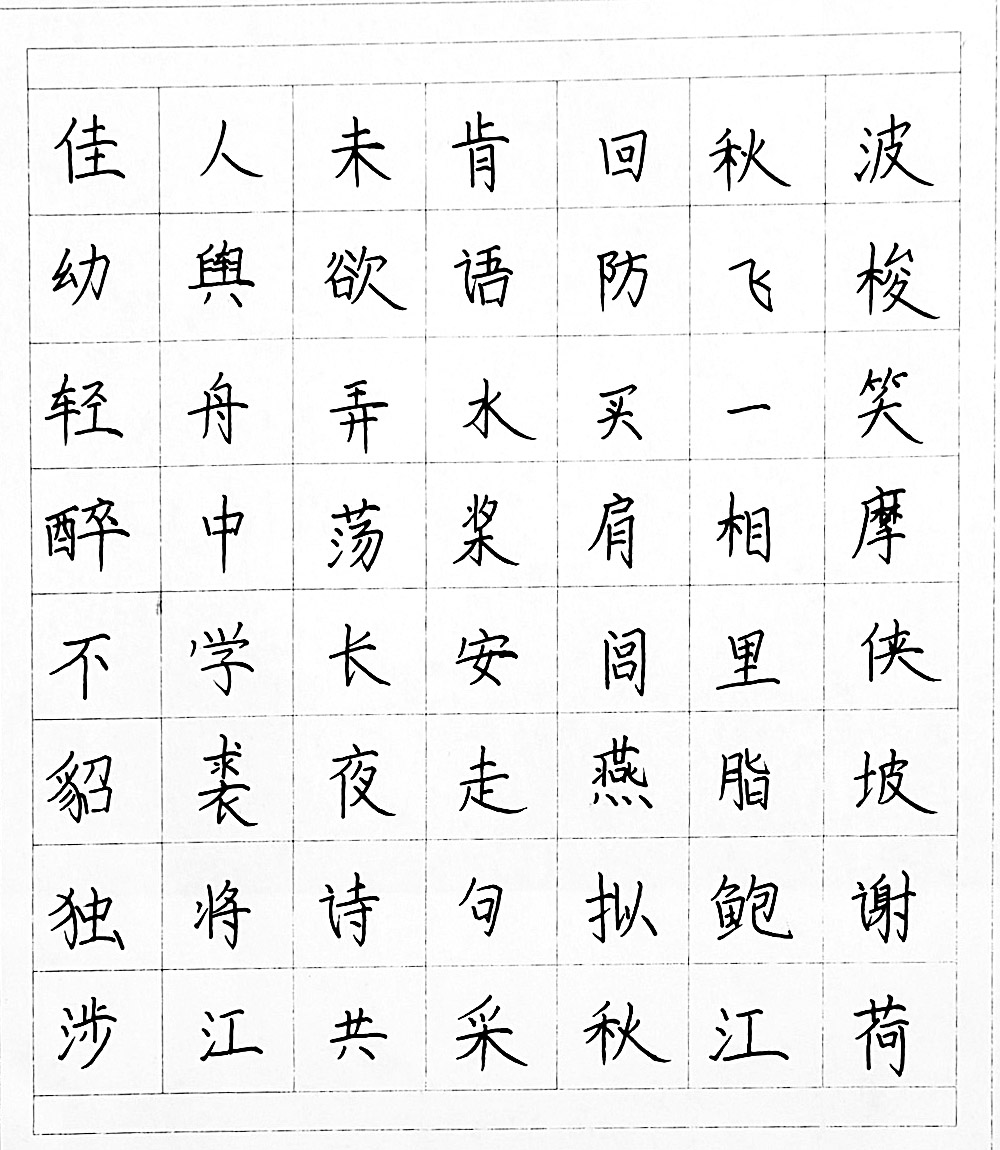 佳人未肯回秋波
幼舆欲语防飞梭
轻舟弄水买一笑
醉中荡桨肩相摩
不学长安闾里侠
貂裘夜走燕脂坡
独将诗句拟鲍谢
涉江共采秋江荷